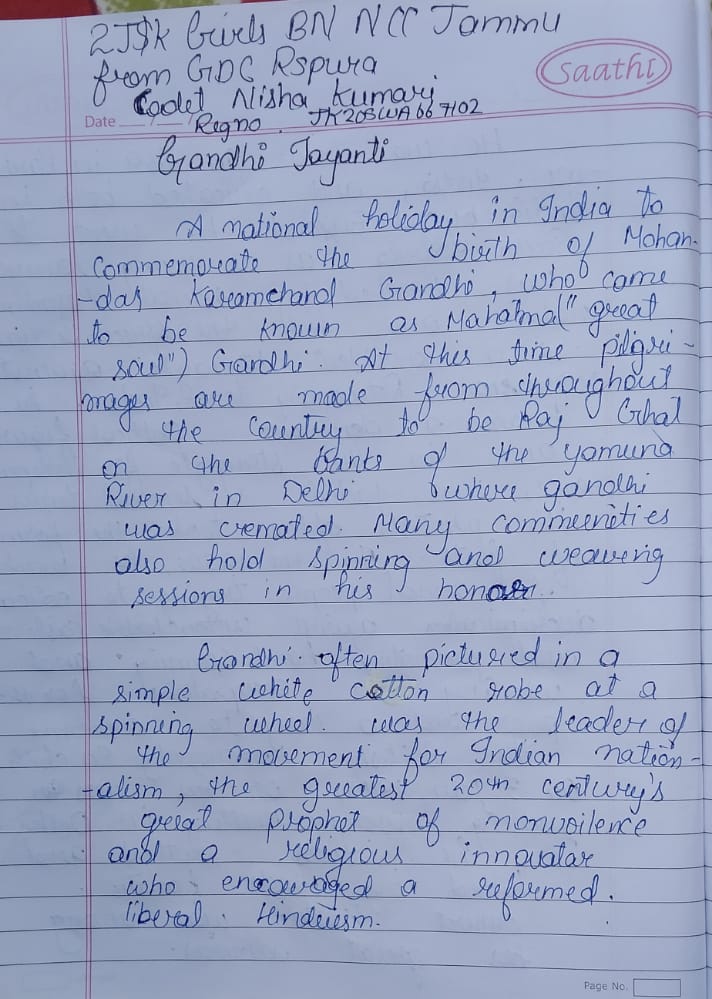 2J&K Girls BN NCC Jammu
from GDC Rspura
Saathi
Cadet Nisha Kumari
Date
Regno. JK20SWA667102
Gandhi Jayanti
A national holiday in India to
commemorate the birth of Mohan-
-das Karamchand Gandhi, who came
to be known as Mahatma(" great
soul") Gandhi. At this time pilgri-
mages are made from throughout
the country to be Raj Ghat
on the banks of the yamuna
River in Delhi where gandhi
was cremated. Many communities
also hold spinning and weaving
sessions in his honour.
Gandhi. often pictured in a
simple white cotton robe at a
spinning wheel. was the leader of
the movement for Indian nation-
-alism, the greatest 20th century's
great prophet of nonvoilence
and a religious innovatar
who encouraged a reformed.
liberal. Hinduism.
Page No.